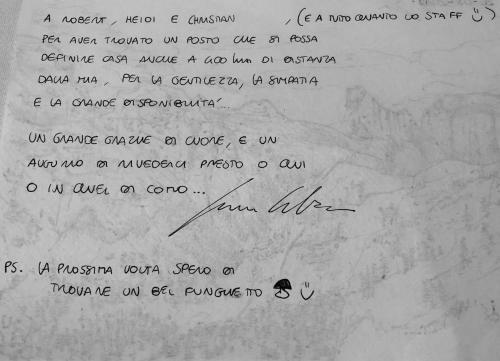 A ROBERT, HEIDI E CHRISTIAN , (E A TUTTO QUANTO LO STAFF ☺)
PER AVER TROVATO UN POSTO CHE SI POSSA
DEFINIRE CASA ANCHE A 400 km DI DISTANZA
DALLA MIA, PER LA GENTILEZZA, LA SIMPATIA
E LA GRANDE DISPONIBILITÀ...
UN GRANDE GRAZIE DI CUORE, E UN
AUGURIO DI RIVEDERCI PRESTO O QUI
O IN QUEL DI COMO...
PS. LA PROSSIMA VOLTA SPERO DI
TROVARE UN BEL FUNGHETTO 🍄 ☺